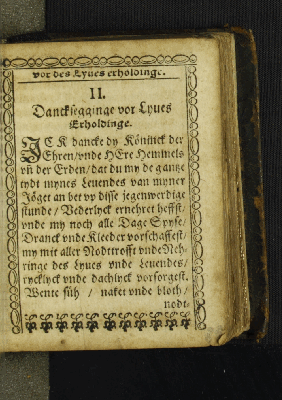 vor des Lyues erholdinge.
II.
Dancksegginge vor Lyues
Erholdinge.
JCK dancke dy Köninck der
Ehren/vnde HEre Hemmels
vñ der Erden/dat du my de gantze
tydt mynes Leuendes van myner
Jöget an bet vp disse jegenwerdige
stunde/Vederlyck ernehret heffst/
vnde my noch alle Dage Spyse/
Dranck vnde Kleeder vorschaffest/
my mit aller Nodttrofft vnde Neh-
ringe des Lyues vnde Leuendes/
rycklyck vnde dachlyck vorsorgest.
Wente süh / naket vnde bloth/
nodt-